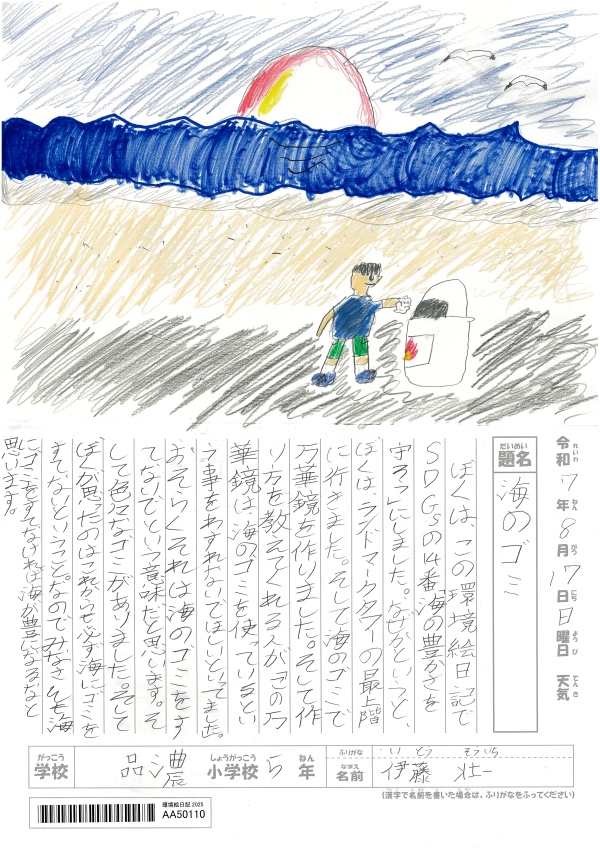 令和7年8月17日日曜日 天気
れいわ ねん がつ にち ようび てんき
だいめい
題名 海のゴミ
ぼくは、この環境絵日記で
SDGSの14番「海の豊かさを
守ろう」にしました。なぜかというと、
ぼくは、ランドマークタワーの最上階
に行きました。そして海のゴミで
万華鏡を作りました。そして作
り方を教えてくれる人が「この万
華鏡は海のゴミを使っているとい
う事をわすれないでほしいといってました。
おそらくそれは海のゴミをす
てないでという意味だと思います。そ
して色々なゴミがありました。そして
ぼくが思ったのはこれからも必ず海にゴミを
すてないということ。なのでみなさんも海
にゴミをすてなければ海が豊になるなと
思います。
がっこう しょうがっこう ねん
学校 品濃 小学校 5年
ふりがな いとう そういち
なまえ
名前 伊藤 壮一
(漢字で名前を書いた場合は、ふりがなをふってください)
環境絵日記 2025
AA50110